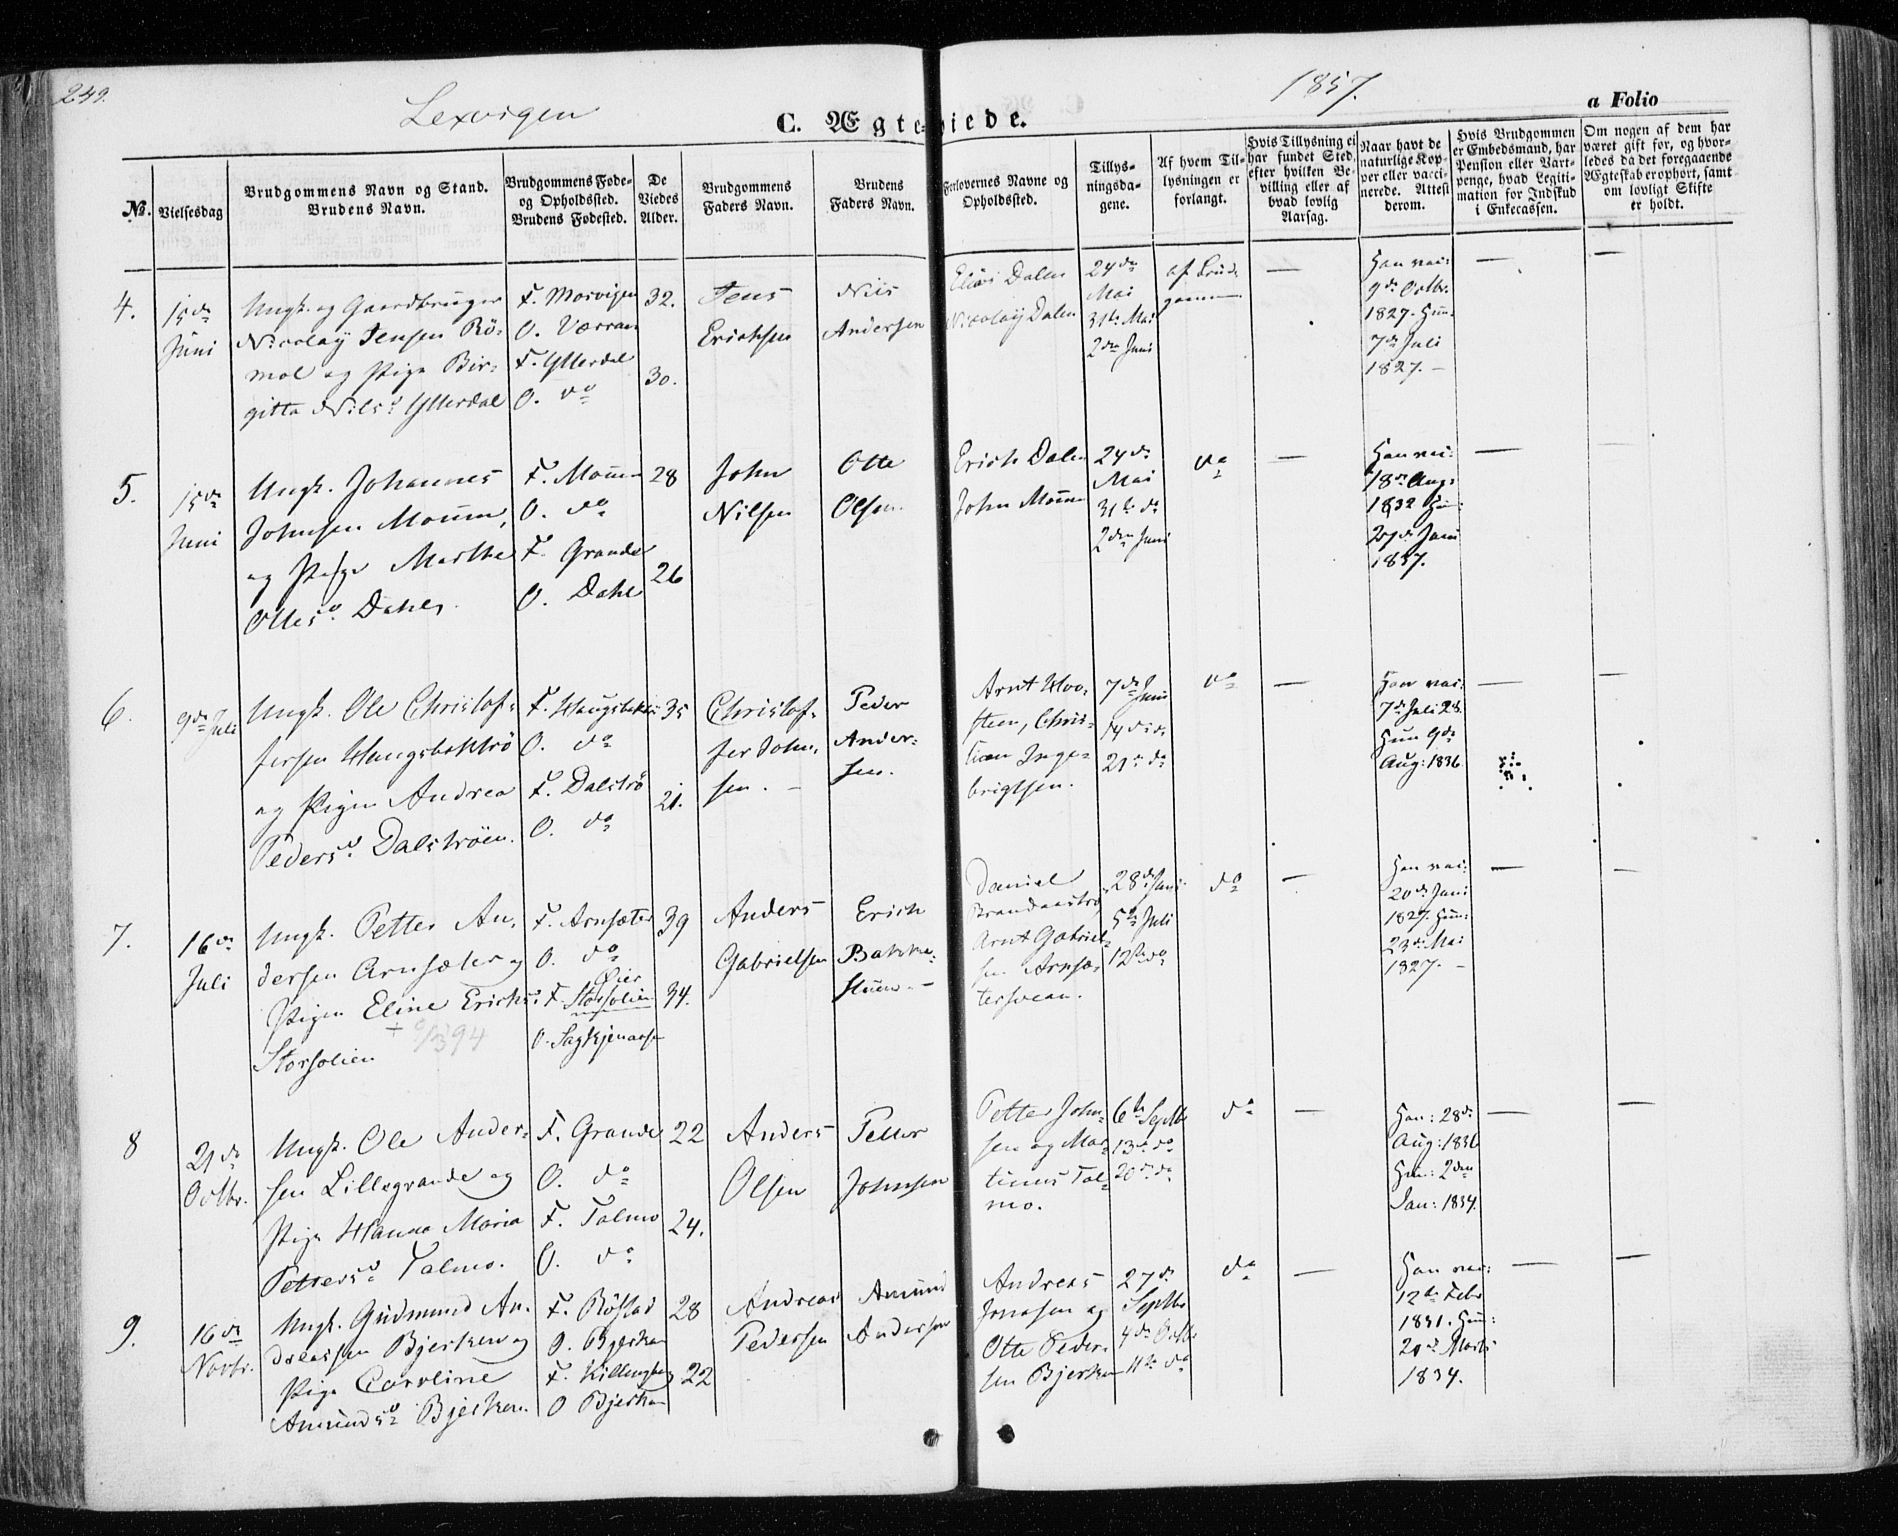 249.
Lexvigen
1857.
C. Ægteviede.
a Folio
No.
Vielsesdag
Brudgommens Navn og Stand.
Brudens Navn.
Brudgommens Føde-
og Opholdssted.
Brudens Fødested.
De
Viedes
Alder.
Brudgommens
Faders Navn.
Brudens
Faders Navn.
Forlovernes Navne og
Opholdssted.
Tillys-
ningsda-
gene.
Af hvem Til-
lysningen er
forlangt.
Hvis Tillysning ei
har fundet Sted,
efter hvilken Be-
villing eller af
hvad lovlig
Aarsag.
Naar havt de
naturlige Kop-
per eller vacci-
nerede. Attest
derom.
Hvis Brudgommen
er Embedsmand, har
Pension eller Vart-
penge, hvad Legiti-
mation for Indskud
i Enkecassen.
Om nogen af dem har
været gift for, og hvor-
ledes da det foregaaende
Ægteskab er ophørt, samt
om lovligt Skifte
er holdt.
4.
15de
Juni
Ungk. og Gaardbruger
Nicolaÿ Jensen Rö-
mol og Pige Bir-
gitta Nilsd. Ytterdal
F. Mosvigen
O. Værran
F. Ytterdal
O. do
32.
30.
Jens
Erichsen
Nils
Andersen
Elias Dalen
Nicolaÿ Dalen
24de
Mai
31te Mai
2den Juni
af Brud-
gommen
—
Han vac:
9de Octbr.
1827. Hun
7de Juli
1827. —
—
—
5.
15de
Juni
Ungk. Johannes
Johnsen Moum,
og Pige Marthe
Ottesd. Dahle.
F. Moum
O. do
F. Grande
O. Dahle
28
26
John
Nilsen
Otte
Olsen.
Erich Dalen
John Moum
24de
Mai
31te do
2den Juni
do
—
Han vac:
18de Aug:
1832 Hun:
27de Juni
1837.
—
—
6.
9de Juli
Ungk. Ole Christof-
fersen Haugsbaktrö
og Pigen Andrea
Pedersd. Dalströen.
F. Haugsbaktr
O. do
F. Dalströ
O. do
35
21.
Christof-
fer John-
sen. —
Peder
Ander-
sen.
Arnt Hoo-
steen, Chris-
tian Inge-
brigtsen.
7de Juni
14de do
21de do
do
—
Han vac:
7de Juli 28.
Hun 9de
Aug: 1836.
—
—
7.
16de
Juli
Ungk. Petter An-
dersen Arnsæter og
Pigen Eline Erichsd.
Storsolien
+ 6/3 94
F. Arnsæter
O. do
Øier
F. Storsolien
O. Sagtjernaasen
39
34.
Anders
Gabrielsen
Erich
Bakke-
Huen. —
Daniel
Brandaaströ
Arnt Gabriel-
sen Arnsæ-
tersvean.
28de Juni
5te Juli
12te do
do
—
Han vac:
20de Juni
1827. Hun:
23de Mai
1827. —
—
—
8
21de
Octbr.
Ungk. Ole Ander-
sen Lillegrande og
Pige Hanna Maria
Pettersd. Talmo.
F. Grande
O. do
F. Talmo
O. do
22
24.
Anders
Olsen
Petter
Johnsen
Petter John-
sen og Mar-
tinus Tal-
mo.
6te Septbr
13de do
20de do
do
—
Han: 28de
Aug: 1836
Hun: 2den
Jan: 1834.
—
—
9.
16de
Novbr.
Ungk. Gudmund An-
dreassen Bjerken og
Pige Caroline
Amundsd. Bjerken.
F. Röstad
O. Bjerkan
F. Killingberg
O Bjerkan
28
22
Andreas
Pedersen
Amund
Andersen
Andreas
Jonasen og
Otte Peder-
sen Bjerkan
27de
Septbr
4de Octbr
11te do
do
—
Han vac:
12te Febr
1831. Hun:
20de Marts
1834.
—
—